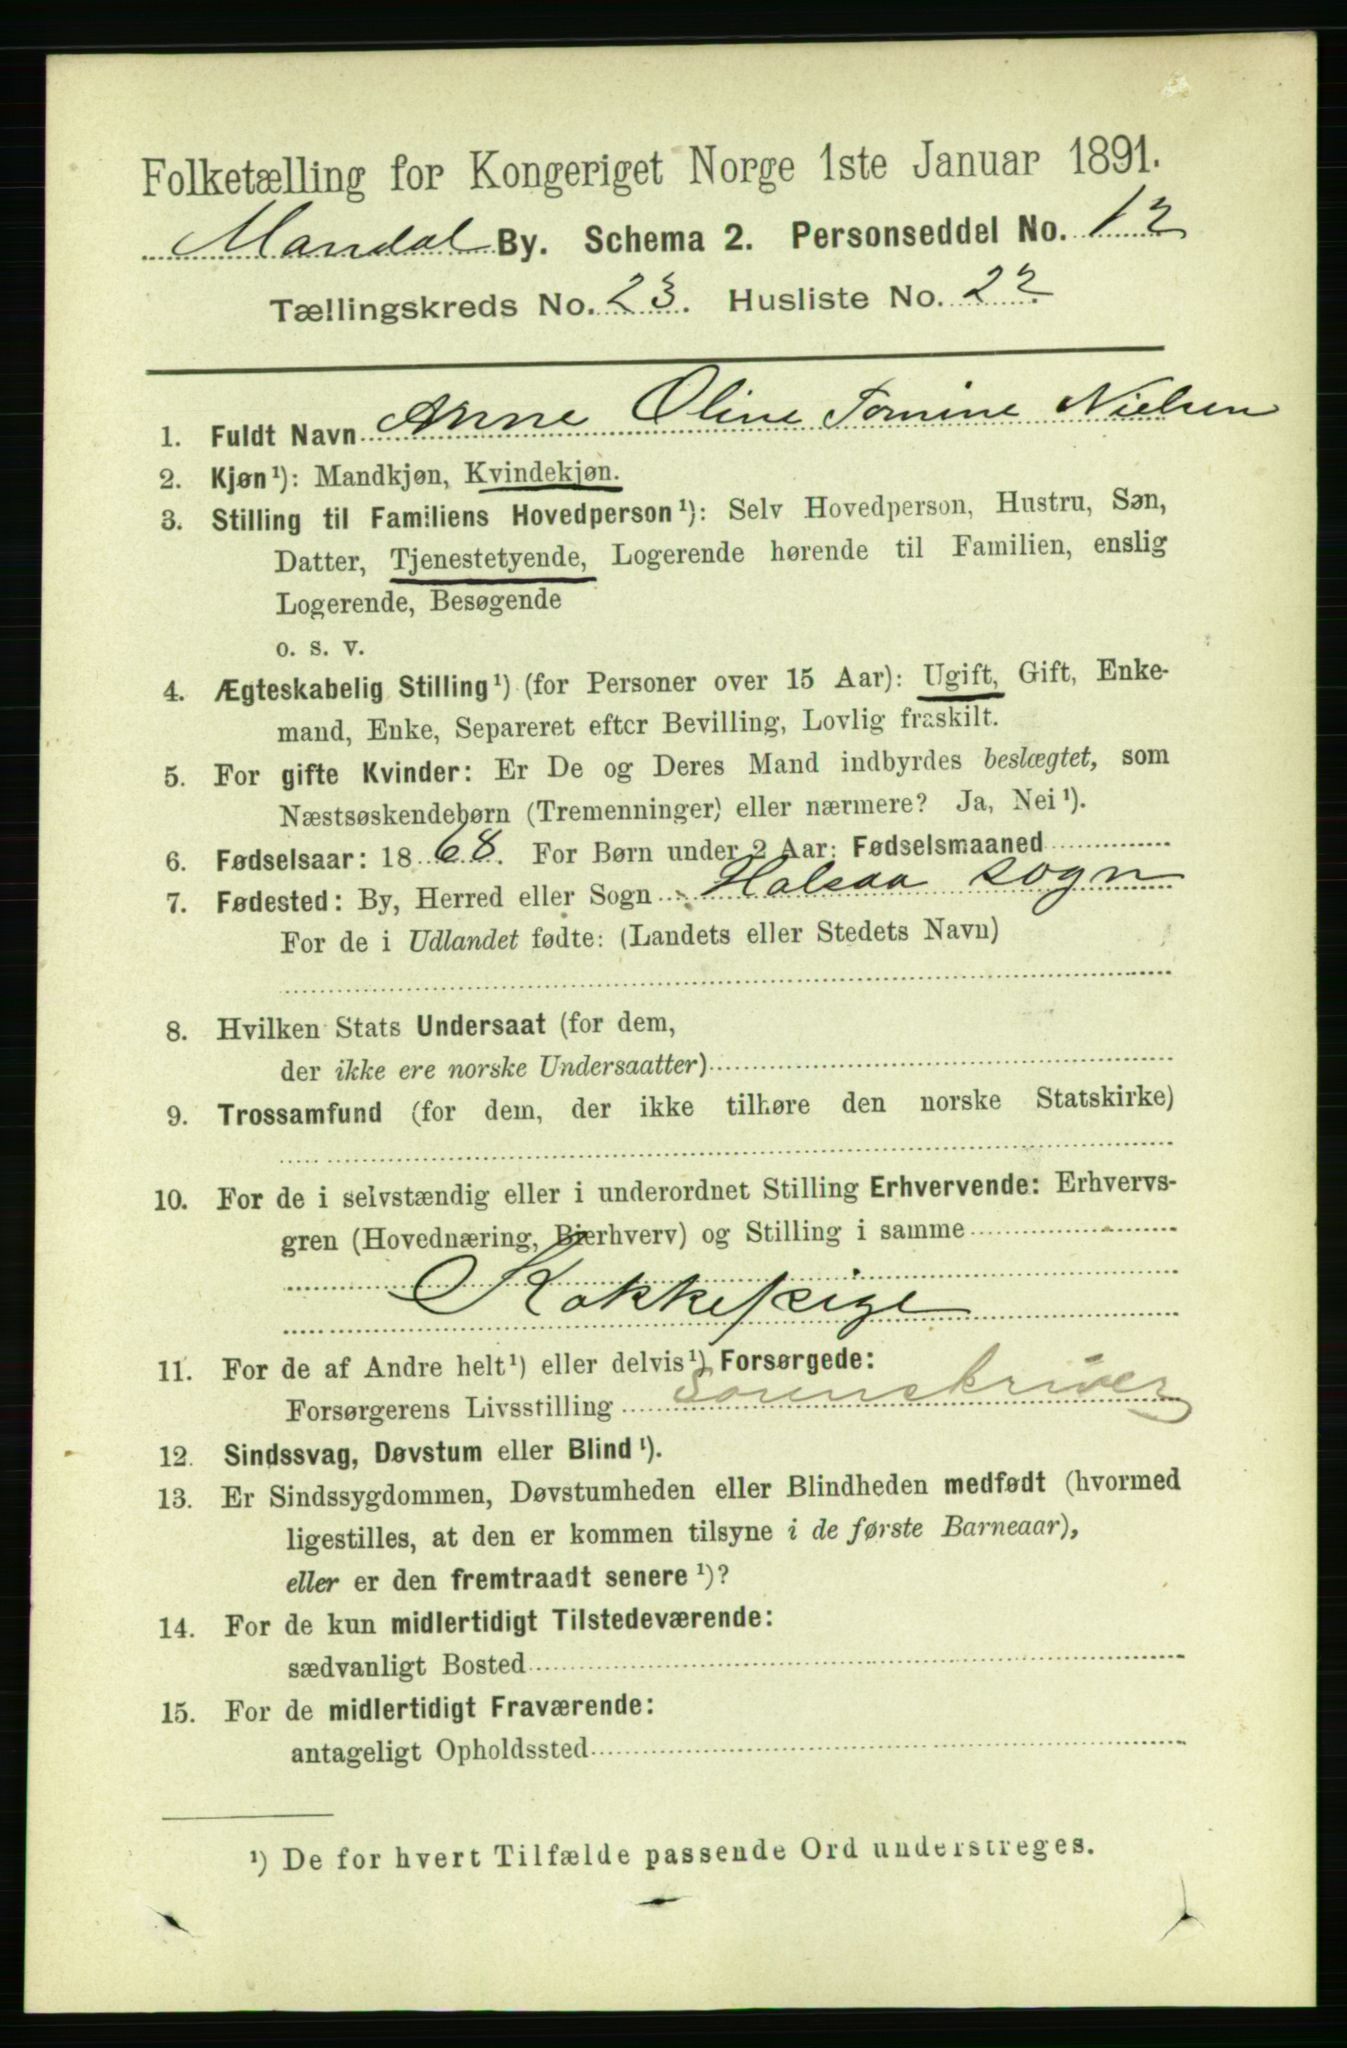 Folketælling for Kongeriget Norge 1ste Januar 1891.
Mandal By. Schema 2. Personseddel No. 12
Tællingskreds No. 23. Husliste No. 22
1. Fuldt Navn Anne Oline Tomine Nielsen
2. Kjøn¹): Mandkjøn, Kvindekjøn.
3. Stilling til Familiens Hovedperson¹): Selv Hovedperson, Hustru, Søn,
Datter, Tjenestetyende, Logerende hørende til Familien, enslig
Logerende, Besøgende
o. s. v.
4. Ægteskabelig Stilling¹) (for Personer over 15 Aar): Ugift, Gift, Enke-
mand, Enke, Separeret efter Bevilling, Lovlig fraskilt.
5. For gifte Kvinder: Er De og Deres Mand indbyrdes beslægtet, som
Næstsøskendebørn (Tremenninger) eller nærmere? Ja, Nei¹).
6. Fødselsaar: 1868. For Børn under 2 Aar: Fødselsmaaned
7. Fødested: By, Herred eller Sogn Halsaa sogn
For de i Udlandet fødte: (Landets eller Stedets Navn)
8. Hvilken Stats Undersaat (for dem,
der ikke ere norske Undersaatter)
9. Trossamfund (for dem, der ikke tilhøre den norske Statskirke)
10. For de i selvstændig eller i underordnet Stilling Erhvervende: Erhvervs-
gren (Hovednæring, Bierhverv) og Stilling i samme
Kokkepige
11. For de af Andre helt¹) eller delvis¹) Forsørgede:
Forsørgerens Livsstilling Sorenskriver
12. Sindssvag, Døvstum eller Blind¹).
13. Er Sindssygdommen, Døvstumheden eller Blindheden medfødt (hvormed
ligestilles, at den er kommen tilsyne i de første Barneaar),
eller er den fremtraadt senere¹)?
14. For de kun midlertidigt Tilstedeværende:
sædvanligt Bosted
15. For de midlertidigt Fraværende:
antageligt Opholdssted
¹) De for hvert Tilfælde passende Ord understreges.